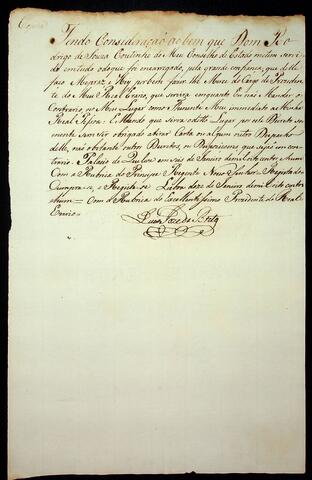 Copia
Tendo Consideração ao bem que Dom Ro
drigo de Souza Coutinho do Meu Conselho de Estado me tem servi
do em tudo o de que foi encarregado, pela grande confiança, que delle
faço Me praz e Hey por bem fazer lhe Merce do Cargo de Presiden
te do Meu Real Erario, que servirá enquanto Eu não Mandar o
Contrario no Meu Lugar como Thenente Meu immediato a Minha
Real Pessoa. E Mando que sirva o dito Lugar por este Decreto so
mente sem ser obrigado a tirar Carta ou algum outro Despacho
delle, não obstante outros Decretos, ou Disposiçoens que sejão em con
trario. Palacio de Queluz em seis de Janeiro de mil oito centos e hum
Com a Rubrica do Principe Regente Nosso Senhor
Cumpra-se, e Registe-se Lisboa de Janeiro de mil oito centos
e hum = Com a Rubrica do Excellentissimo Prezidente do Real
Erario
Luiz Jozé de Brito